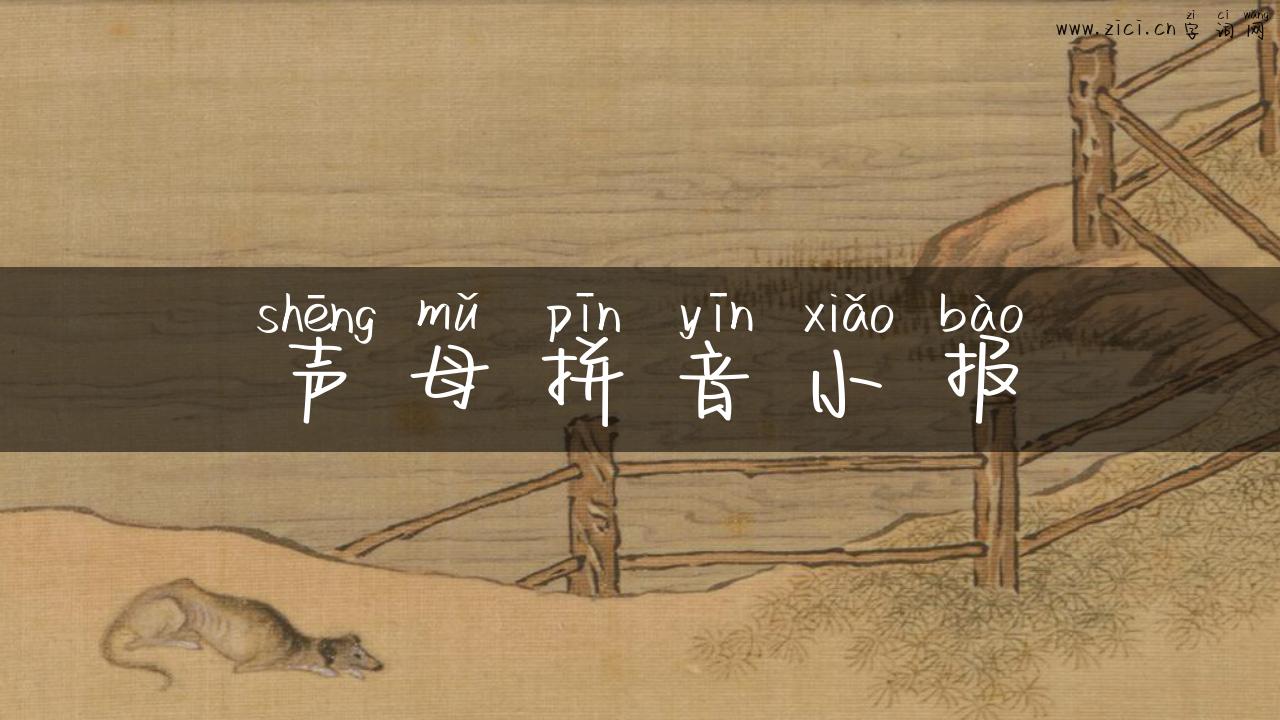 zi ci wang
www.zici.cn 字词网
shēng mǔ pīn yīn xiǎo bào
声母拼音小报